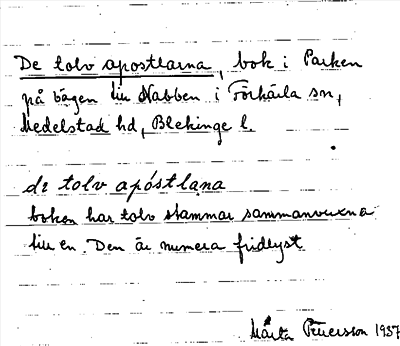 De tolv apostlarna, bok i Parken
på vägen till Nabben i Förkärla sn,
Medelstad hd, Blekinge l.
de tolv apóstlana
boken har tolv stammar sammanvuxna
till en. Den är numera fridlyst
Märta Petersson 1937